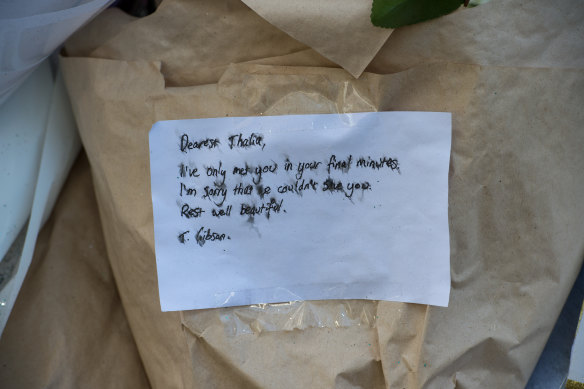 Dearest Thalia,
I've only met you in your final minutes.
I'm sorry that we couldn't save you.
Rest well beautiful.
T. Gibson.